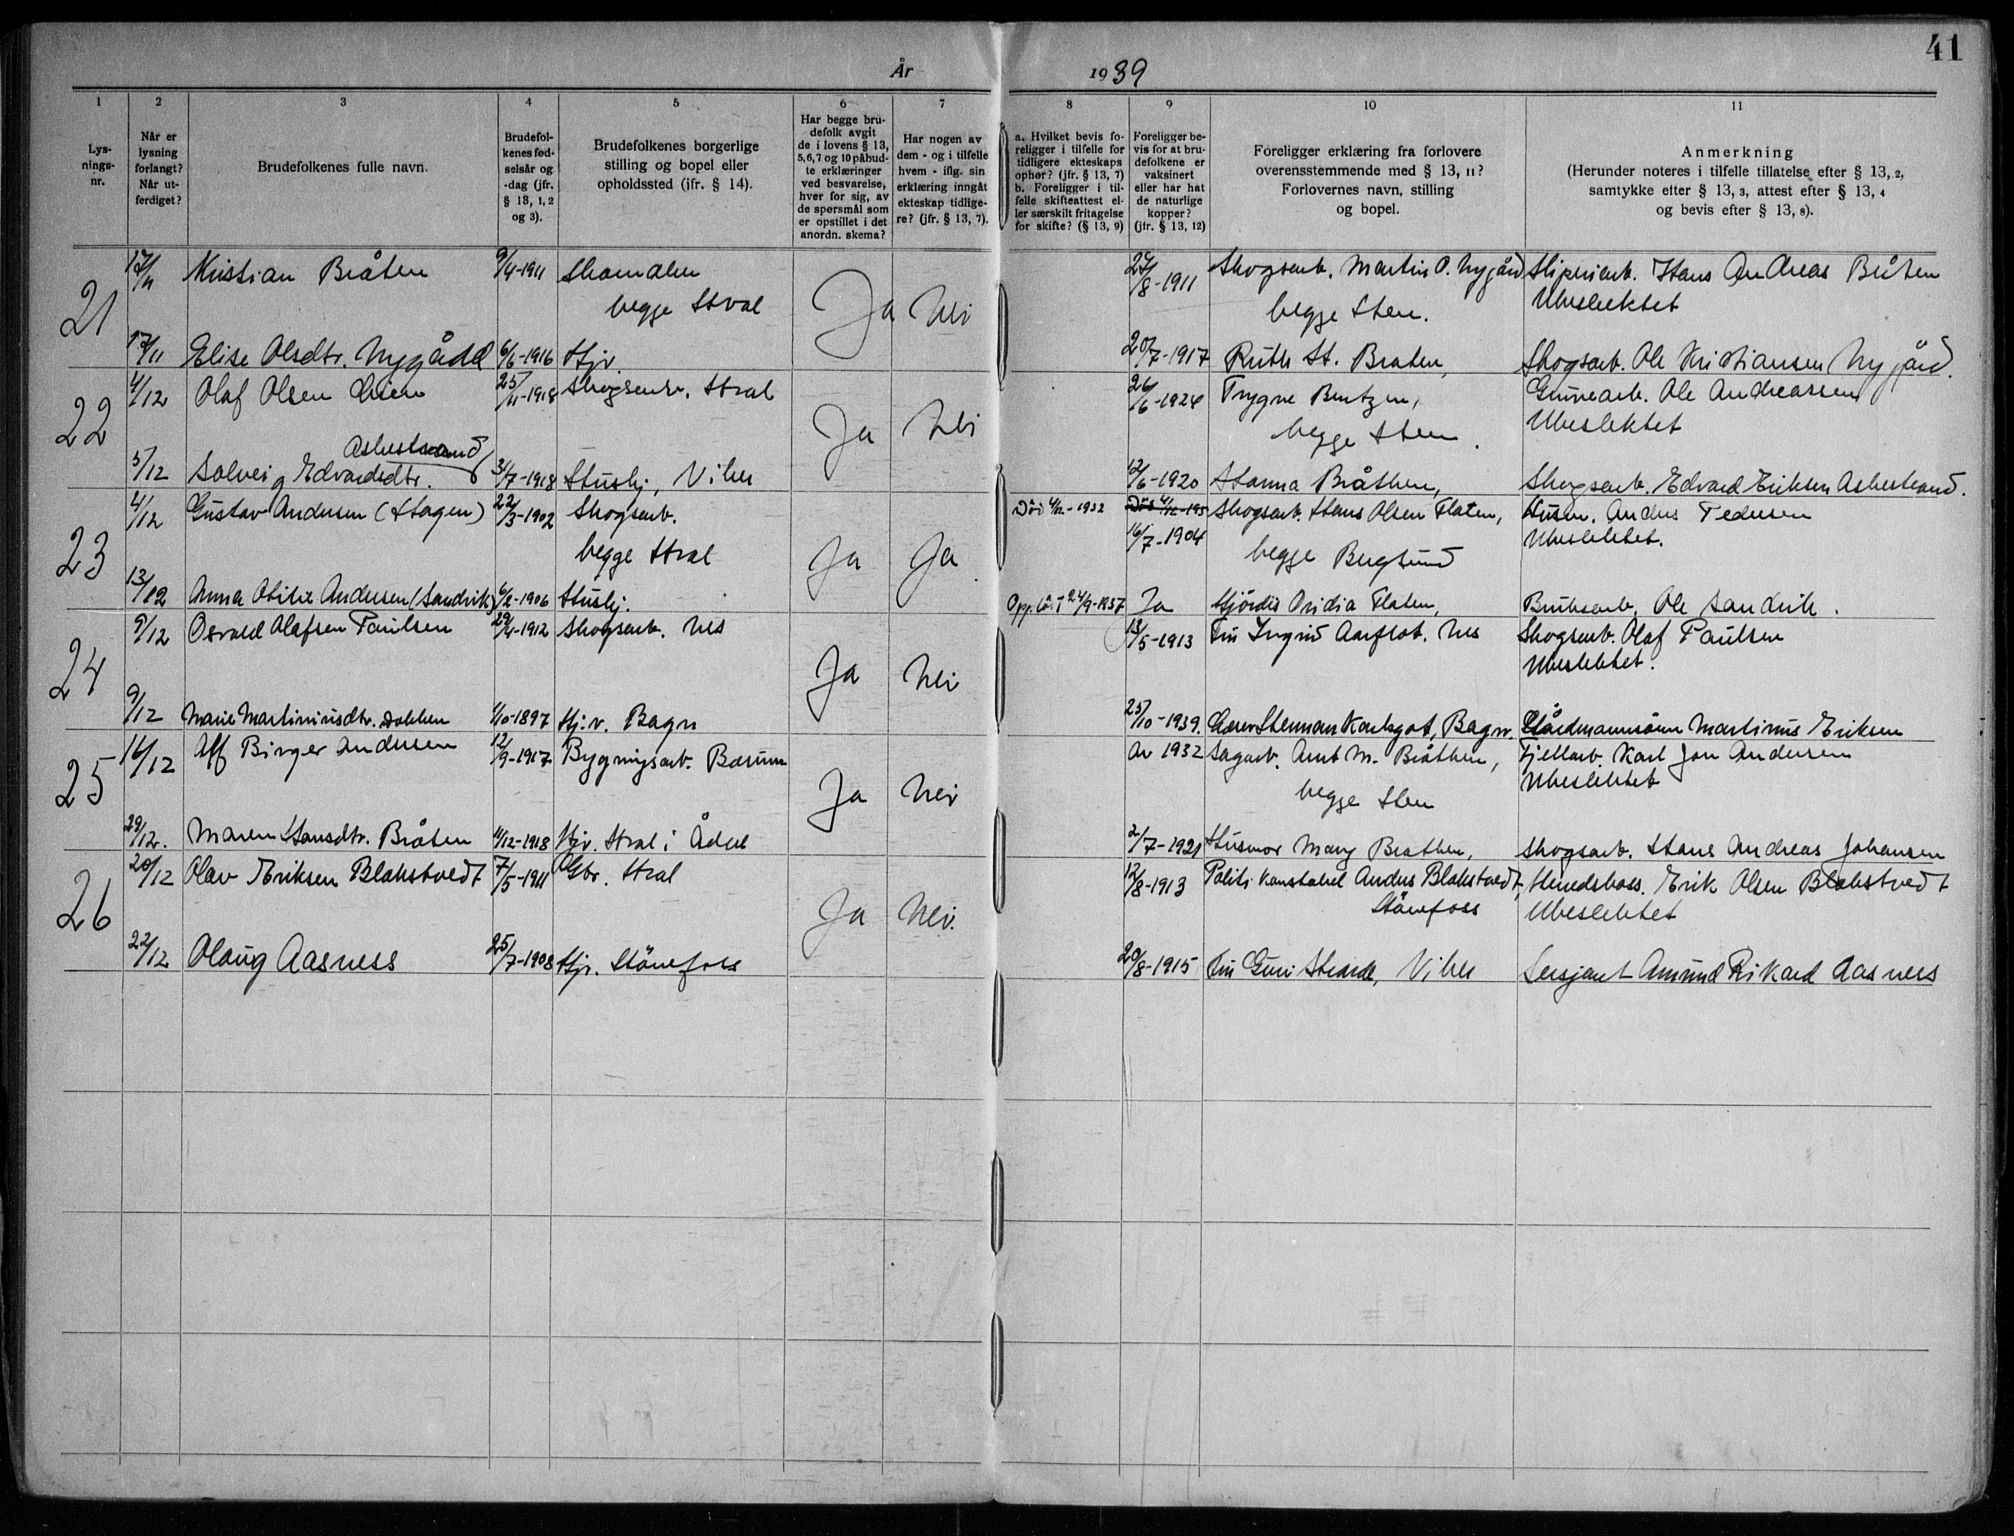 41
År 1939
1 2 3 4 5 6 7 8 9 10 11
Lys-
nings-
nr.
Når er
lysning
forlangt?
Når ut-
ferdiget?
Brudefolkenes fulle navn.
Brudefol-
kenes fød-
selsår og
-dag (jfr.
§ 13, 1, 2
og 3).
Brudefolkenes borgerlige
stilling og bopel eller
opholdssted (jfr. § 14).
Har begge bru-
defolk avgit
de i lovens § 13,
5, 6, 7 og 10 påbud-
te erklæringer
ved besvarelse,
hver for sig, av
de spørsmål som
er opstillet i det
anordn. skema?
Har nogen av
dem - og i tilfelle
hvem - iflg. sin
erklæring inngåt
ekteskap tidlige-
re? (jfr. § 13, 7).
a. Hvilket bevis fo-
religger i tilfelle for
tidligere ekteskaps
ophør? (jfr. § 13, 7)
b. Foreligger i til-
felle skifteattest el-
ler særskilt fritagelse
for skifte? (§ 13, 9)
Foreligger be-
vis for at bru-
defolkene er
vaksinert
eller har hat
de naturlige
kopper?
(jfr. § 13, 12)
Foreligger erklæring fra forlovere
overensstemmende med § 13, 11?
Forlovernes navn, stilling
og bopel.
Anmerkning
(Herunder noteres i tilfelle tillatelse efter § 13, 2,
samtykke efter § 13, 3, attest efter § 13, 4
og bevis efter § 13, 8).
21 17/11 Kristian Bråten 9/4-1911 Skomaker Ja Nei 24/8-1911 Skogsarb. Martin O. Nygård Sliperiarb. Hans Andreas Bråten
begge Stral begge Sten. Ubeslektet
17/11 Elise Olsdtr. Nygård 6/6-1916 Hjv. 20/7-1917 Ruth H. Braten, Skogsarb. Ole Kristiansen Nygård.
22 4/12 Olaf Olsen 25/11-1918 Skogsarb. Stral Ja Nei 26/6-1924 Trygve Berntzen, Gruvearb. Ole Andreassen
begge Sten. Ubeslektet
Asbestrand
5/12 Solveig Edvardsdtr. 31/7-1918 Hushj., Viker 12/6-1920 Hanna Bråthen, Skogsarb. Edvard Eriksen Asbestrand.
23 4/12 Gustav Andersen (Hagen) 22/3-1902 Skogsarb. Ja Ja Død 4/12-1932 Skogsarb. Hans Olsen Flaten, Husm. Anders Pedersen
begge Stral 16/7-1904 begge Bergsund Ubeslektet.
13/12 Anna Otilie Andersen (Sandvik) 6/2-1906 Hushj. Oppløst 24/9-1937 Ja Hjördis Ovidia Flaten, Bruksarb. Ole Sandvik.
24 9/12 Osvald Olafsen Paulsen 29/4-1912 Skogsarb. Nes Ja Nei 13/5-1913 Fru Ingrid Aarflot. Nes Skogsarb. Olaf Paulsen
Ubeslektet.
9/12 Marie Martiniusdtr. Dokken 4/10-1897 Hj.v. Bagn 25/10-1939. Lærer Steinar Karlsgot, Bagn. Gårdmannssønn Martinus Eriksen
25 16/12 Alf Birger Andersen 12/9-1917 Bygningsarb. Bærum Ja Nei År 1932 Sagarb. Arnt M. Bråthen, Fjellarb. Karl Jon Andersen
begge Sten Ubeslektet
29/12. Maren Hansdtr. Bråten 11/12-1918 Hjv. Stral i Ådal 2/7-1921 Husmor Mary Bråthen, Skogsarb. Hans Andreas Johansen
26 20/12 Olav Eriksen Blakstvedt 7/5-1911 Gbr. Stral Ja Nei. 12/8-1913 Politi konstabel Anders Blakstvedt, Herredskass. Erik Olsen Blakstvedt
Hönefoss Ubeslektet
22/12 Olaug Aasness 25/7-1908 Hjv. Hönefoss 20/8-1915 Fru Guri Skarde, Viker Sersjant Amund Rikard Aasness